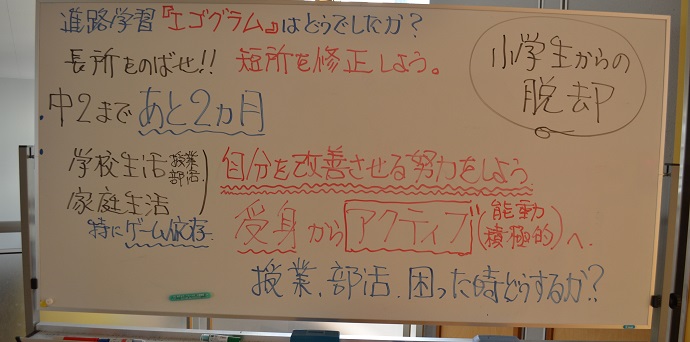 進路学習『エゴグラム』はどうでしたか？
長所をのばせ!! 短所を修正しよう。
小学生からの
脱却
中2まであと2カ月
学校生活 授業 部活
家庭生活
特にゲーム依存
自分を改善させる努力をしよう
受身からアクティブ(能動 積極的)へ.
授業、部活、困った時どうするか？